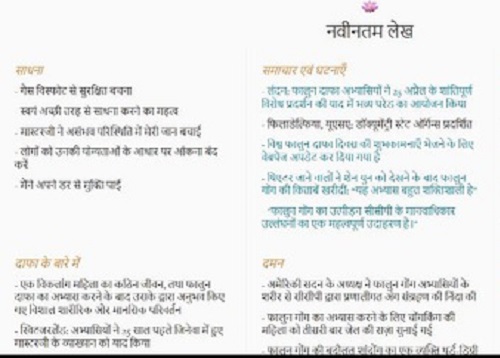 नवीनतम लेख
साधना
- गैस विस्फोट से सुरक्षित बचना
स्वयं अच्छी तरह से साधना करने का महत्व
- मास्टरजी ने असंभव परिस्थिति में मेरी जान बचाई
- लोगों को उनकी योग्यताओं के आधार पर आंकना बंद
करें
- मैंने अपने डर से मुक्ति पाई
समाचार एवं घटनाएँ
- लंदन: फालुन दाफा अभ्यासियों ने 25 अप्रैल के शांतिपूर्ण
विरोध प्रदर्शन की याद में भव्य परेड का आयोजन किया
- फिलाडेल्फिया, यूएसए: डॉक्यूमेंट्री स्टेट ऑर्गन्स प्रदर्शित
- विश्व फालुन दाफा दिवस की शुभकामनाएँ भेजने के लिए
वेबपेज अपडेट कर दिया गया है
- थिएटर जाने वालों ने शेन युन को देखने के बाद फालुन
गोंग की किताबें खरीदीं: "यह अभ्यास बहुत शक्तिशाली है"
"फालुन गोंग का उत्पीड़न सीसीपी के मानवाधिकार
उल्लंघनों का एक महत्वपूर्ण उदाहरण है।"
दाफा के बारे में
- एक विकलांग महिला का कठिन जीवन, तथा फालुन
दाफा का अभ्यास करने के बाद उसके द्वारा अनुभव किए
गए विशाल शारीरिक और मानसिक परिवर्तन
- स्विटजरलैंड: अभ्यासियों ने 25 साल पहले जिनेवा में हुए
मास्टरजी के व्याख्यान को याद किया
दमन
- अमेरिकी सदन के अध्यक्ष ने फालुन गोंग अभ्यासियों के
शरीर से सीसीपी द्वारा प्रणालीगत अंग संग्रहण की निंदा की
- फालुन गोंग का अभ्यास करने के लिए चोंगकिंग की
महिला को तीसरी बार जेल की सज़ा सुनाई गई
- फालुन गोंग की बदौलत का एक व्यक्ति